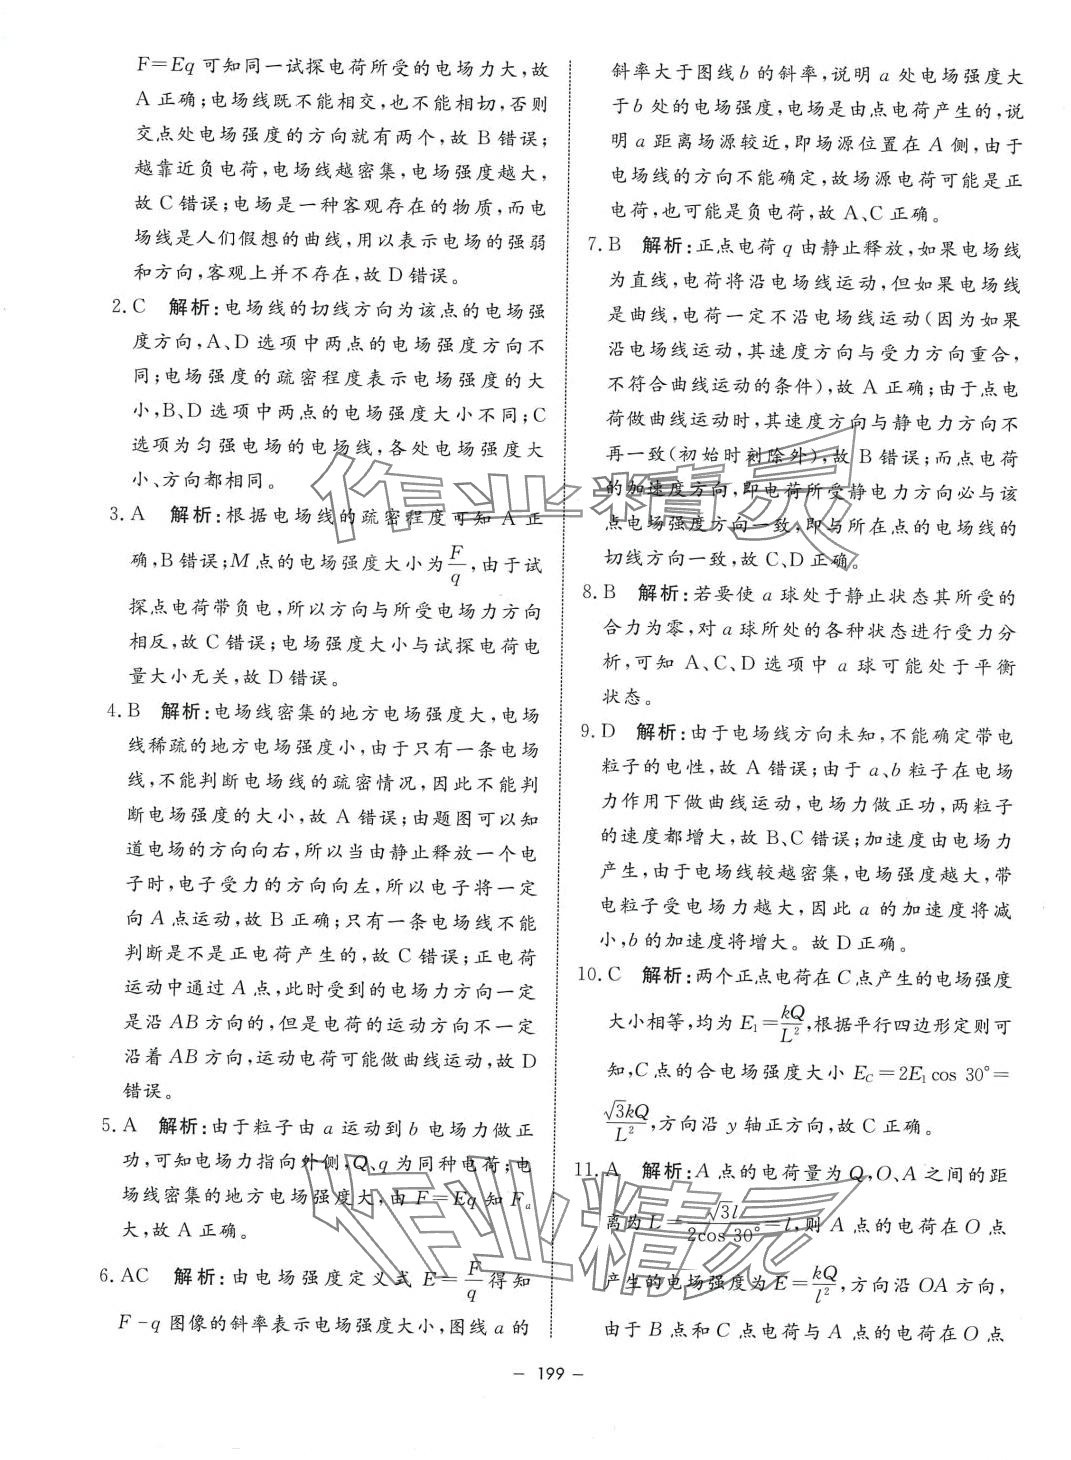 F=Eq 可知同一试探电荷所受的电场力大,故
A 正确;电场线既不能相交,也不能相切,否则
交点处电场强度的方向就有两个,故 B 错误;
越靠近负电荷,电场线越密集,电场强度越大,
故 C 错误;电场是一种客观存在的物质,而电
场线是人们假想的曲线,用以表示电场的强弱
和方向,客观上并不存在,故 D 错误。
2. C 解析:电场线的切线方向为该点的电场强
度方向,A、D 选项中两点的电场强度方向不
同;电场强度的疏密程度表示电场强度的大
小,B、D 选项中两点的电场强度大小不同;C
选项为匀强电场的电场线,各处电场强度大
小、方向都相同。
3. A 解析:根据电场线的疏密程度可知 A 正
确,B 错误;M 点的电场强度大小为 F/q,由于试
探点电荷带负电,所以方向与所受电场力方向
相反,故 C 错误;电场强度大小与试探电荷电
量大小无关,故 D 错误。
4. B 解析:电场线密集的地方电场强度大,电场
线稀疏的地方电场强度小,由于只有一条电场
线,不能判断电场线的疏密情况,因此不能判
断电场强度的大小,故 A 错误;由题图可以知
道电场的方向向右,所以当由静止释放一个电
子时,电子受力的方向向左,所以电子将一定
向 A 点运动,故 B 正确;只有一条电场线不能
判断是不是正电荷产生的,故 C 错误;正电荷
运动中通过 A 点,此时受到的电场力方向一定
是沿 AB 方向的,但是电荷的运动方向不一定
沿着 AB 方向,运动电荷可能做曲线运动,故 D
错误。
5. A 解析:由于粒子由 a 运动到 b 电场力做正
功,可知电场力指向外侧,Q、q 为同种电荷;电
场线密集的地方电场强度大,由 F=Eq 知 Fₐ
大,故 A 正确。
6. AC 解析:由电场强度定义式 E=F/q 得知
F-q 图像的斜率表示电场强度大小,图线 a 的
斜率大于图线 b 的斜率,说明 a 处电场强度大
于 b 处的电场强度,电场是由点电荷产生的,说
明 a 距离场源较近,即场源位置在 A 侧,由于
电场线的方向不能确定,故场源电荷可能是正
电荷,也可能是负电荷,故 A、C 正确。
7. B 解析:正点电荷 q 由静止释放,如果电场线
为直线,电荷将沿电场线运动,但如果电场线
是曲线,电荷一定不沿电场线运动(因为如果
沿电场线运动,其速度方向与受力方向重合,
不符合曲线运动的条件),故 A 正确;由于点电
荷做曲线运动时,其速度方向与静电力方向不
再一致(初始时刻除外),故 B 错误;而点电荷
的加速度方向,即电荷所受静电力方向必与该
点电场强度方向一致,即与所在点的电场线的
切线方向一致,故 C、D 正确。
8. B 解析:若要使 a 球处于静止状态其所受的
合力为零,对 a 球所处的各种状态进行受力分
析,可知 A、C、D 选项中 a 球可能处于平衡
状态。
9. D 解析:由于电场线方向未知,不能确定带电
粒子的电性,故 A 错误;由于 a、b 粒子在电场
力作用下做曲线运动,电场力做正功,两粒子
的速度都增大,故 B、C 错误;加速度由电场力
产生,由于电场线较越密集,电场强度越大,带
电粒子受电场力越大,因此 a 的加速度将减
小,b 的加速度将增大。故 D 正确。
10. C 解析:两个正点电荷在 C 点产生的电场强度
大小相等,均为 E₁=kQ/L²,根据平行四边形定则可
知,C 点的合电场强度大小 E_C=2E₁cos 30°=
√3kQ/L²,方向沿 y 轴正方向,故 C 正确。
11. A 解析:A 点的电荷量为 Q,O、A 之间的距
离为 L=√3l/(2cos 30°)=l,则 A 点的电荷在 O 点
产生的电场强度为 E=kQ/l²,方向沿 OA 方向,
由于 B 点和 C 点电荷与 A 点的电荷在 O 点
– 199 –
作业精灵
作业精灵